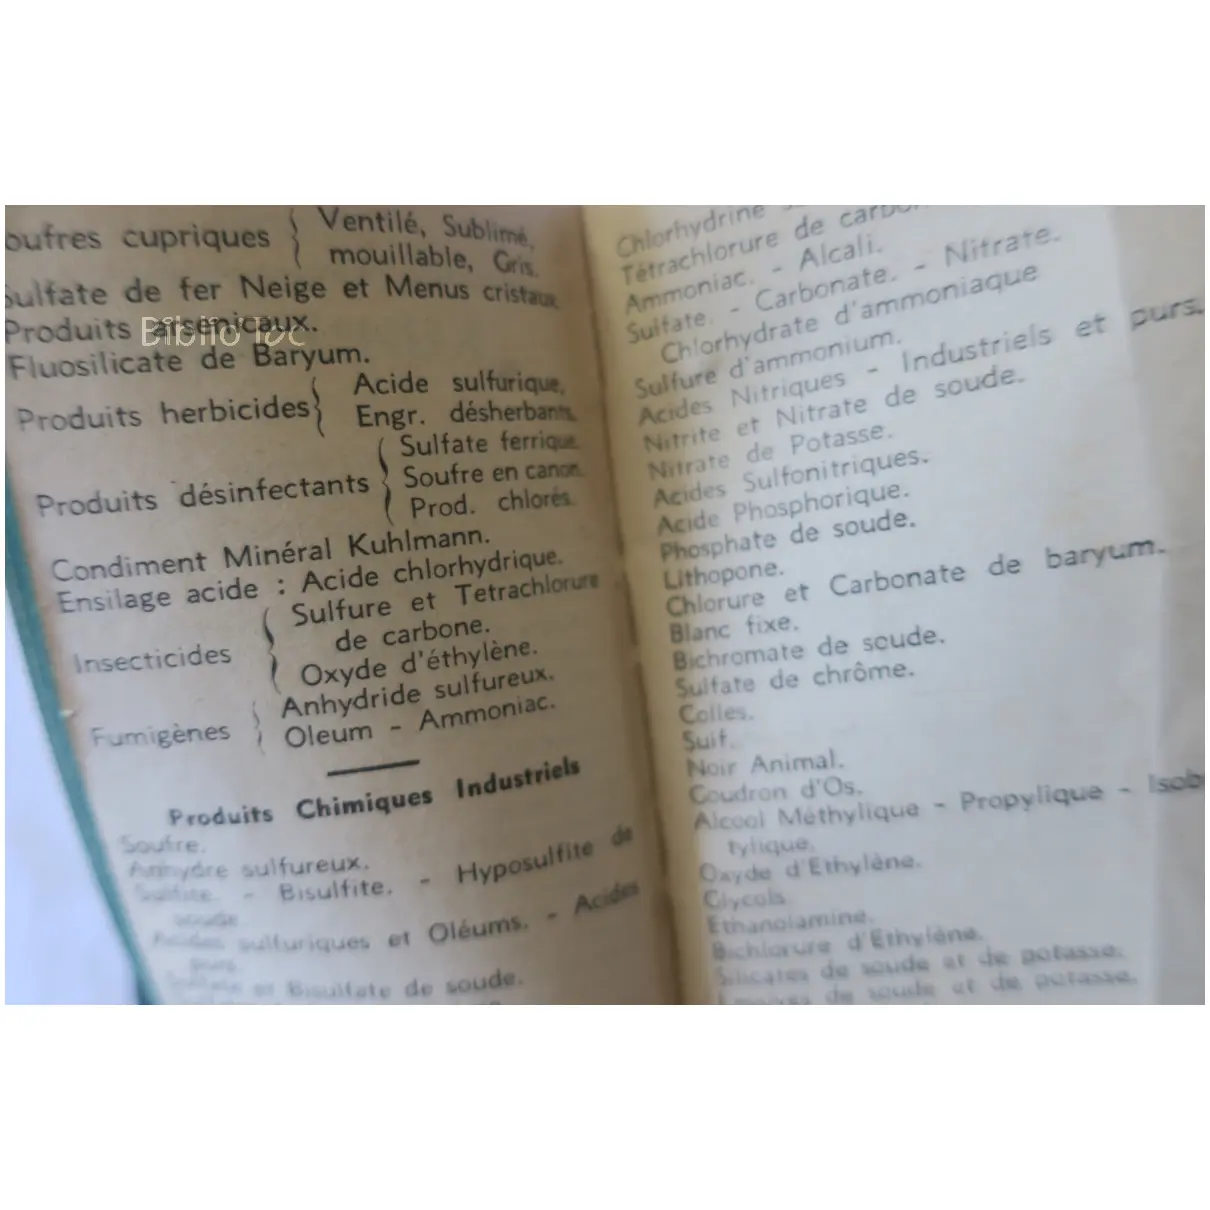 oufres cupriques { Ventilé, Sublimé,
mouillable, Gris.
Sulfate de fer Neige et Menus cristaux
Produits arsenicaux.
Biblio Toc
Fluosilicate de Baryum.
Produits herbicides { Acide sulfurique,
Engr. désherbants.
Produits désinfectants { Sulfate ferrique.
Soufre en canon.
Prod. chlorés.
Condiment Minéral Kuhlmann.
Ensilage acide : Acide chlorhydrique.
Insecticides { Sulfure et Tetrachlorure
de carbone.
Oxyde d'éthylène.
Fumigènes { Anhydride sulfureux.
Oleum - Ammoniac.
Produits Chimiques Industriels
Soufre.
Anhydre sulfureux.
Sulfite. - Bisulfite. - Hyposulfite de
soude.
Acides sulfuriques et Oléums. - Acides
purs.
Sulfate et Bisulfate de soude.
Chlorhydrine
Tétrachlorure de carbon
Ammoniac. - Alcali.
Sulfate. - Carbonate. - Nitrate.
Chlorhydrate d'ammoniaque
Sulfure d'ammonium.
Acides Nitriques - Industriels et purs.
Nitrite et Nitrate de soude.
Nitrate de Potasse.
Acides Sulfonitriques.
Acide Phosphorique.
Phosphate de soude.
Lithopone.
Chlorure et Carbonate de baryum.
Blanc fixe.
Bichromate de soude.
Sulfate de chrôme.
Colles.
Suif.
Noir Animal.
Goudron d'Os.
Alcool Méthylique - Propylique - Isob
tylique.
Oxyde d'Ethylène.
Glycols.
Ethanolamine.
Bichlorure d'Ethylène.
Silicates de soude et de potasse.
de soude et de potasse.